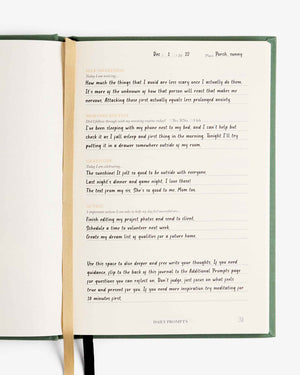 Dec 1 20 22 Place: Porch, sunny
SELF-REFLECTION
Today I am noticing...
How much the things that I avoid are less scary once I actually do them.
It's more of the unknown of how that person will react that makes me
nervous. Attacking those first actually equals less prolonged anxiety.
Did I follow through with my morning routine today? Yes No
I've been sleeping with my phone next to my bed, and I can't help but
check it as I fall asleep and first thing in the morning. Tonight I'll try
putting it in a drawer somewhere outside of my room.
GRATITUDE
Today I am celebrating...
The sunshine! It felt so good to be outside with everyone.
Last night's dinner and game night, I love them!
The text from my sis. She's so good to me. Mom too.
Finish editing my project photos and send to client.
Schedule a time to volunteer next week.
Create my dream list of qualities for a future home.
Use this space to dive deeper and free write your thoughts. If you need
guidance, flip to the back of this journal to the Additional Prompts page
for questions you can reflect on. Don't judge, just focus on what feels
true and present for you. If you need more inspiration try meditating for
10 minutes first.
DAILY PROMPTS